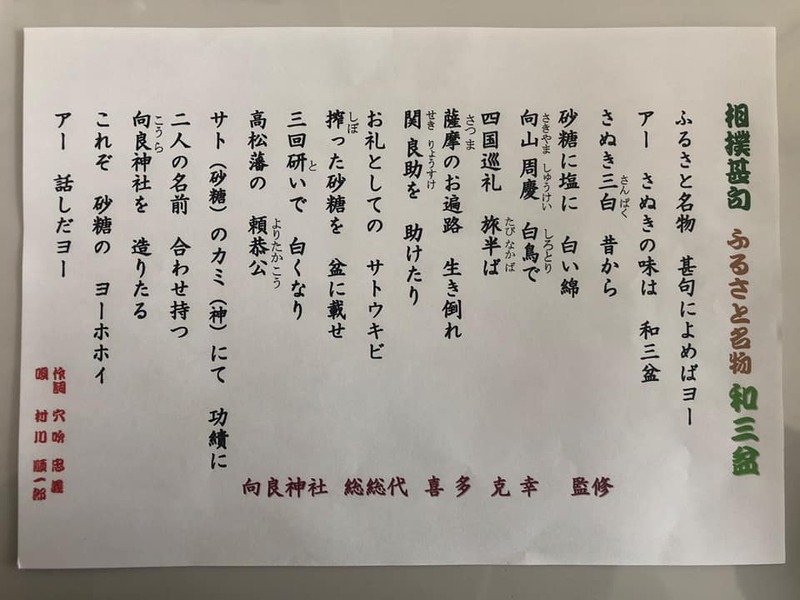 相撲甚句 ふるさと名物 和三盆
ふるさと名物 甚句によめばヨー
アー さぬきの味は 和三盆
さぬき三白 昔から
さんぱく
砂糖に塩に 白い綿
向山周慶 白鳥で
さきやま しゅうけい しろとり
四国巡礼 旅半ば
たび なかば
薩摩のお遍路 生き倒れ
さつま
関良助を 助けたり
せき りょうすけ
お礼としての サトウキビ
搾った砂糖を 盆に載せ
しぼ
三回研いで 白くなり
と
高松藩の 頼恭公
よりたか こう
サト（砂糖）のカミ（神）にて 功績に
二人の名前 合わせ持つ
向良神社を 造りたる
こうら
これぞ 砂糖の ヨーホホイ
アー 話しだヨー
作詞 穴吹 忠義
唄 村川 順一郎
向良神社 総総代 喜多 克幸 監修